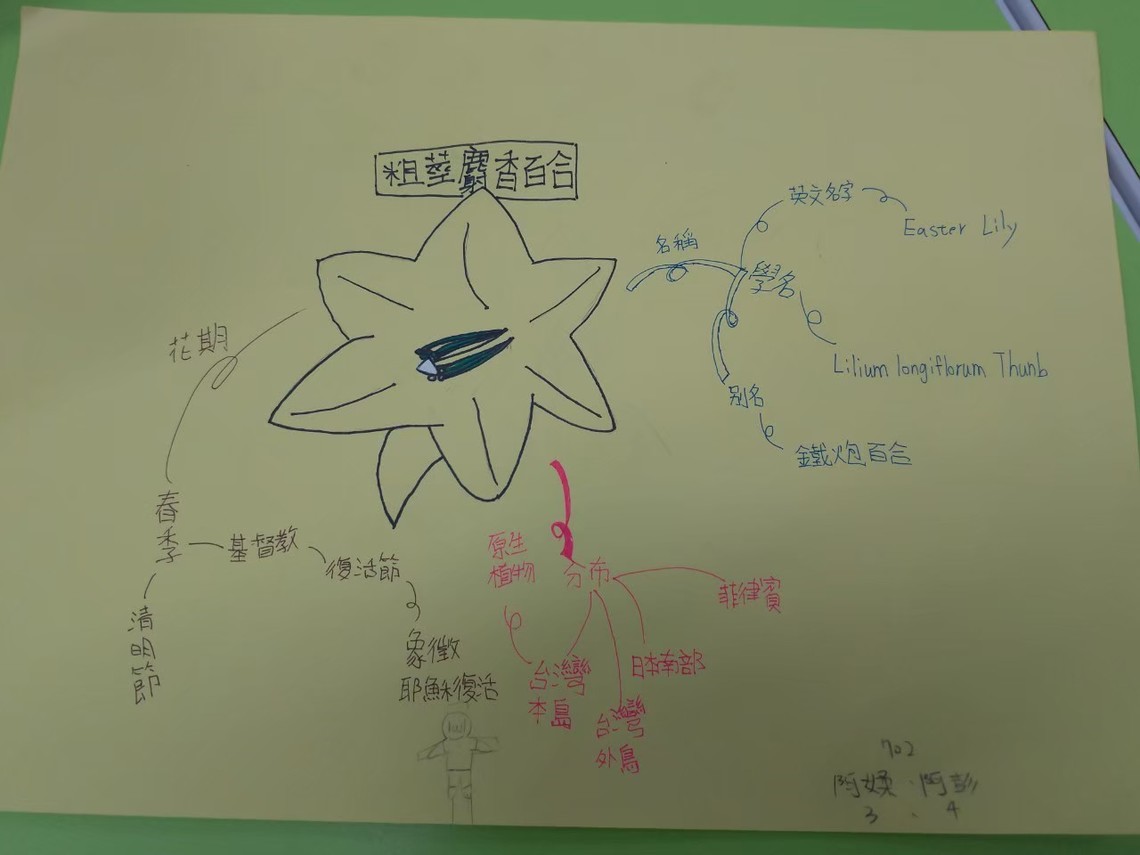 粗莖麝香百合
名稱
英文名字
Easter Lily
學名
Lilium longiflorum Thunb
別名
鐵炮百合
花期
春季
清明節
基督教
復活節
象徵
耶穌復活
原生
植物
分布
台灣
本島
台灣
外島
日本南部
菲律賓
702
阿媃、阿彭
3、4